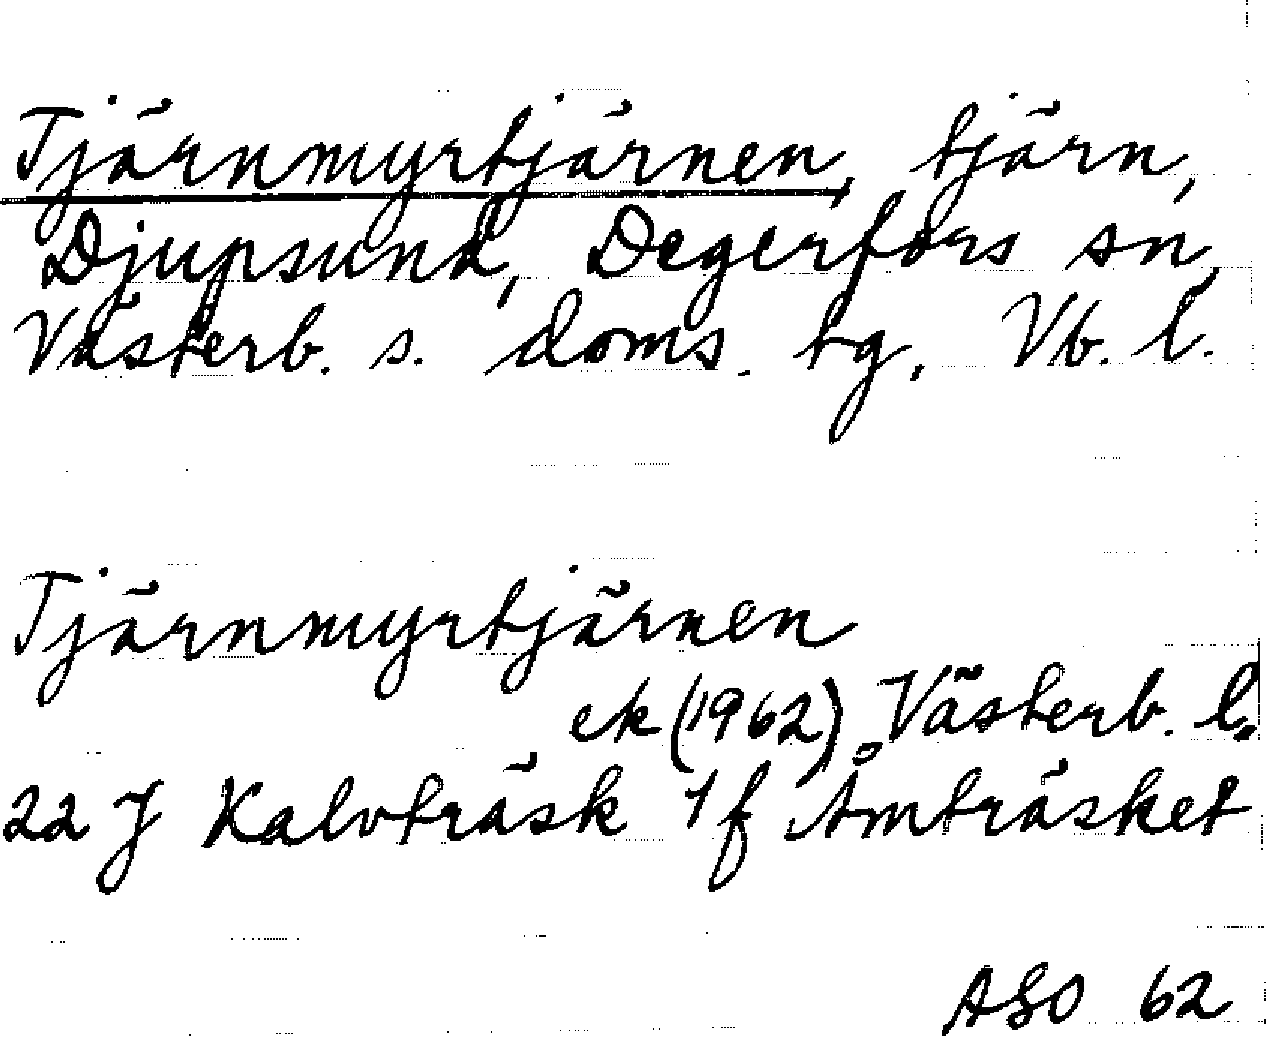 Tjärnmyrtjärnen, tjärn,
Djupsund, Degerfors sn,
Västerb. s. doms. tg, Vb. l.
Tjärnmyrtjärnen
ek (1962) Västerb. l.
22 J Kalvträsk 1f Åmträsket
ASO 62